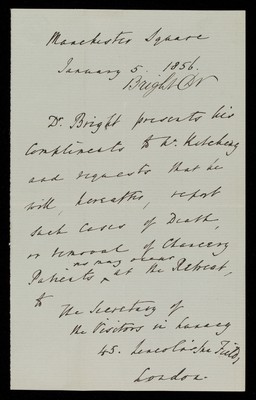 Manchester Square
January 5. 1856.
Bright Dr
Dr. Bright presents his
Compliments to Dr. Kitching
and requests that he
will, hereafter, report
such cases of Death,
or removal of Chancery
as may occur
Patients ^ at the Retreat,
to
The Secretary of
the Visitors in Lunacy
45. Lincoln's Inn Fields,
London.